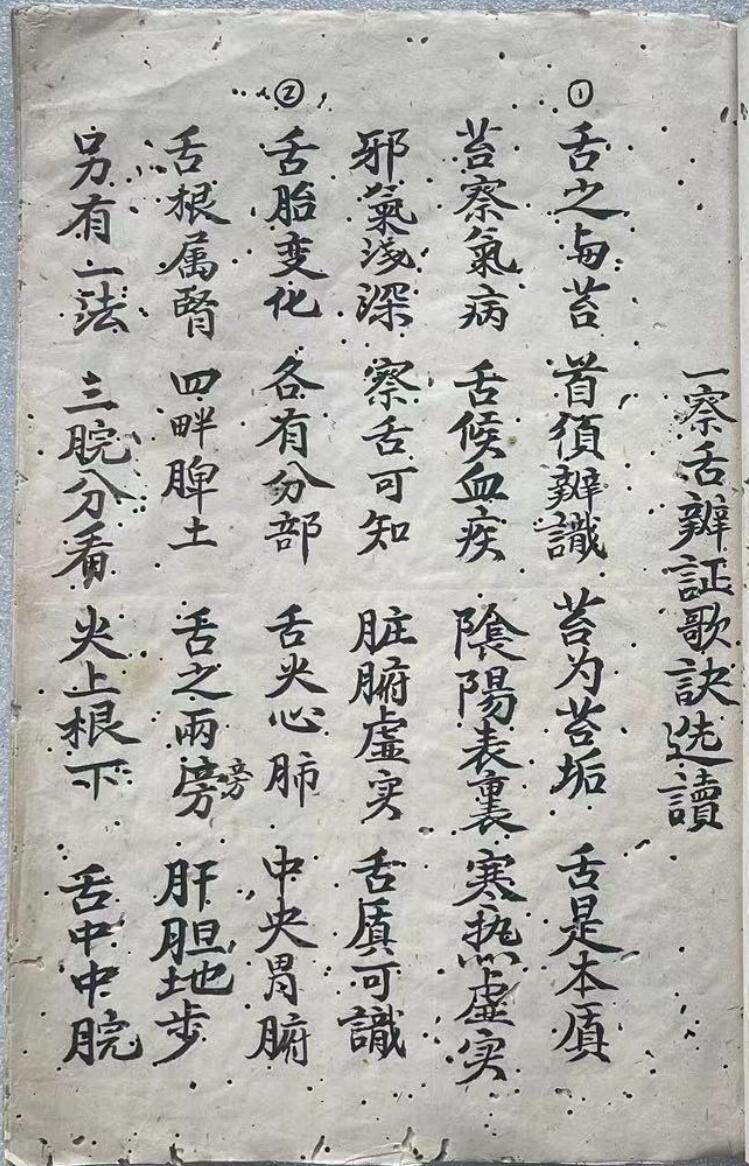 一察舌辧証歌訣选讀
① 舌之与苔 首須辧識 苔为苔垢 舌是本质
苔察氣病 舌候血疾 陰陽表裏 寒热虚实
邪氣浅深 察舌可知 脏腑虚实 舌质可識
② 舌胎变化 各有分部 舌尖心肺 中央胃腑
舌根属腎 四畔脾土 舌之兩旁旁 肝胆地步
另有一法 三脘分看 尖上根下 舌中中脘